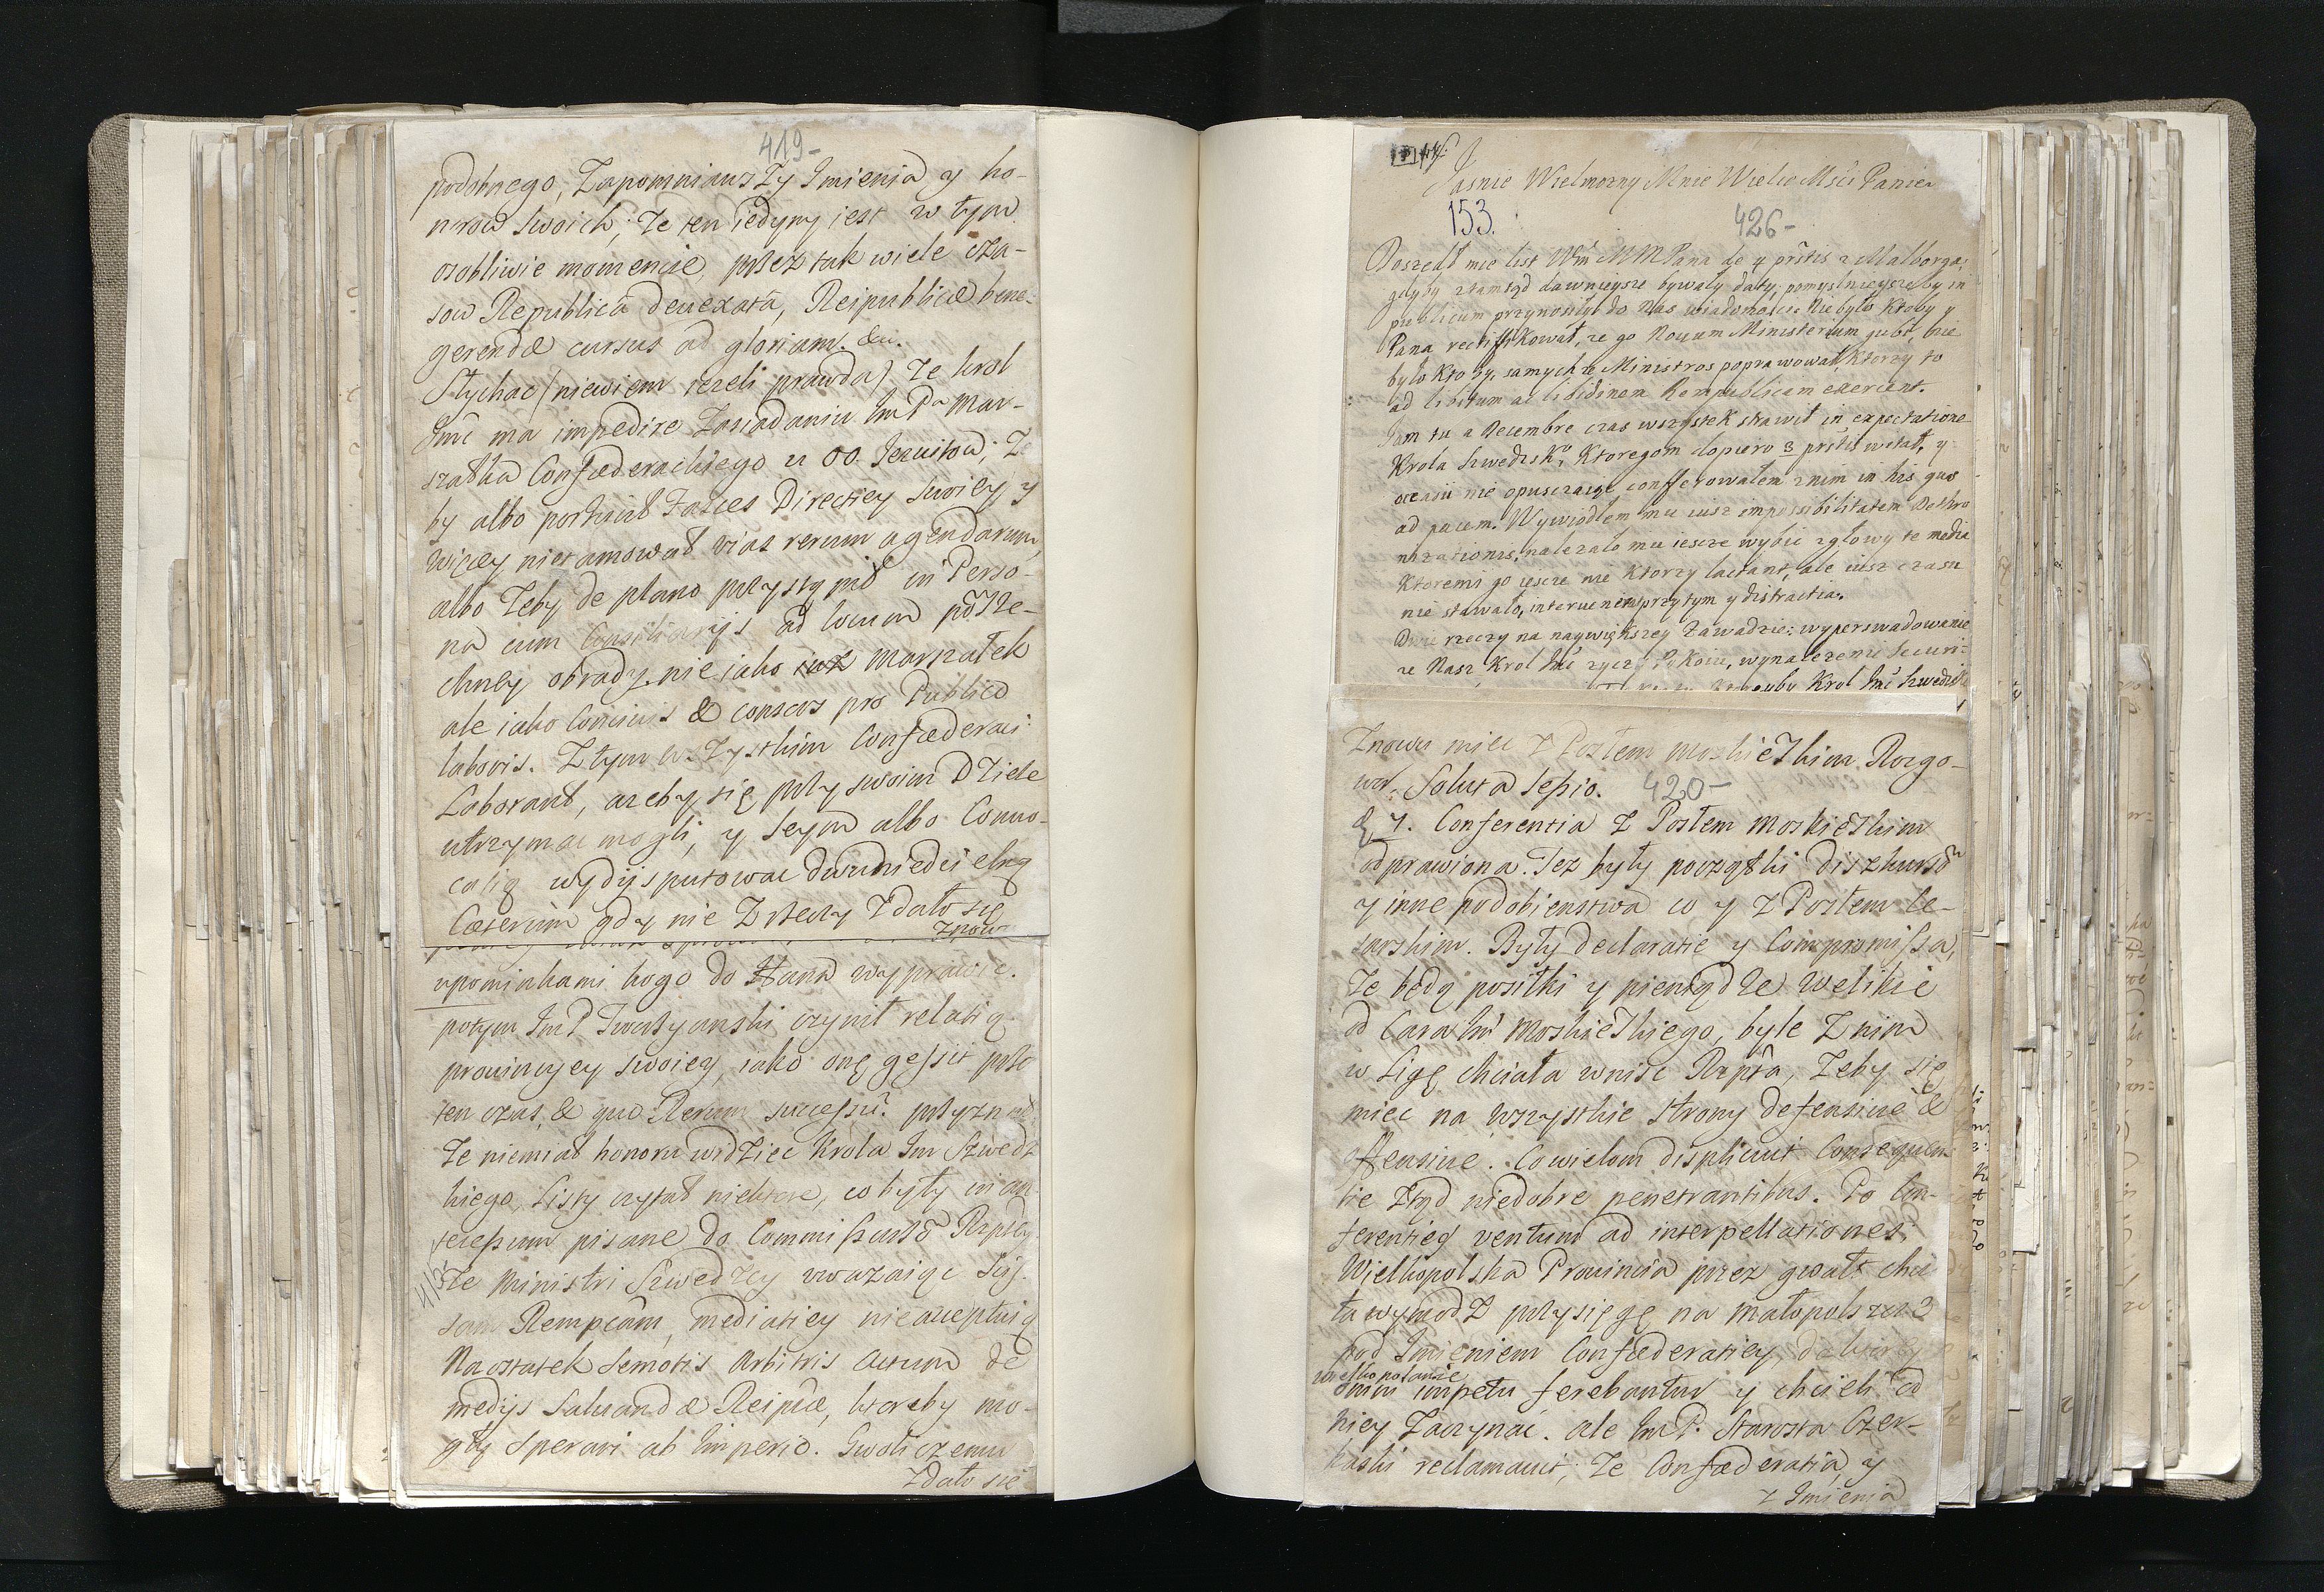 419-
podobnego, Zapomniawszy Imienia y ho-
norow swoich; Ze ten iedyny iest w tym
osobliwie momencie, przez tak wiele cza-
sow Republica devexata, Reipublicæ bene
gerendæ cursus ad gloriam. &c.
Słychac (niewiem iezeli prawda) Ze krol
Jmć ma impedire Zasiadaniu ImPa Mar-
szałka Confæderackiego u OO. Jezuitow; Ze
by albo porzucał Fasces Directiey swoiey y
więcey nietamował vias rerum agendarum,
albo Zeby de plano przystąpił in Perso-
na cum Consiliarijs ad locum powsze-
chney obrady, nie iako iuż Marszałek
ale iako Comunis & consors pro Publico
laboris. Z tym wszystkim Confæderaci
Laborant, azeby się przy swoim Dziele
utrzymac mogli, y Seym albo Conuo-
catią wydysputowac dwuniedzielną
Cæterum gdy nie Z rzeczy Zdało się
Znow
upominkami kogo do Hana wyprawic.
potym ImP Iwaszanski czynił relatią
prouincyey swoiey, iako onę gessit prze
ten czas, & quo Rerum successu? przyznał
Ze niemiał honoru widziec Krola Im Szwedz
kiego, Listy czytał niektore, co były in an-
tecessum pisane do Commissarzow Rzptey
Ze Ministri Szwedzcy uwazaiąc Scis-
sam Rempcam, mediatiey nieacceptuią
Naostatek Semotis Arbitris Actum de
medijs Saluandæ Reipcæ, ktoreby mo-
gły Sperari ab Imperio. Gwoli czemu
Zdało się
Jasnie Wielmozny Mnie Wielce Mści Panie
153.
426-
Doszedł mie list Wm MMPana de 4 prśtis z Malborga,
gdyby ztamtąd dawnieysze bywały daty, pomyslnieysze by in
publicum przynosiły do Nas wiadomosci. Nie było ktoby y
Pana rectiffikował, ze go Nouum Ministerium gubi, nie
było ktoby samych ze Ministros poprawował, ktorzy to
ad libitum ac libidinem Rempublicam exercent.
Jam tu a Decembre czas wszystek strawił in expectatione
Krola Szwedsko, ktoregom dopiero 3 prśtis witał, y
occasii nie opuszczaiąc confferowałem z nim in his quæ
ad pacem. Wywiodłem mu iusz impossibilitatem Dethro
nizationis, nalezało mu iescze wybic z głowy te media
ktoremi go iescze nie ktorzy lactant, ale iusz czasu
nie stawało, interuenit przytym y distractia.
Dwie rzeczy na naywiększey zawadzie: wyperswadowanie
ze Nasz Krol Imć zyczy Pokoiu, wynalezenie Securi-
Krol Imć Szwedski
Znowu miec Z Posłem Moskiewskim Rozgo-
wor. Soluta Sessio.
420-
D. 7. Conferentia Z Posłem Moskiewskim
odprawiona. Tez były początki diszkursow
y inne podobienstwa co y Z Posłem Ce-
sarskim. Były declaratie y Compromissa,
Ze będą posiłki y pieniądze Welikie
od Cara Im Moskiewskiego, byle Z nim
w Ligę chciała wniść Rzpta, Zeby się
miec na wszystkie strony defensiue &
offensiue. Co wielom displicuit Consequen-
tie Ztąd niedobre penetrantibus. Po Con-
ferentiey ventum ad interpellationes.
Wielkopolska Prouincia przez gwałt chcia
ła wymodz przysięgę na Małopolszcze
pod Imieniem Confæderatiey, do ktorey
Wielkopolanie
omni impetu ferebantur y chcieli od
niey Zaczynac. ale ImP. Starosta Czer-
kaski reclamauit, Ze Confæderatia y
z Imienia